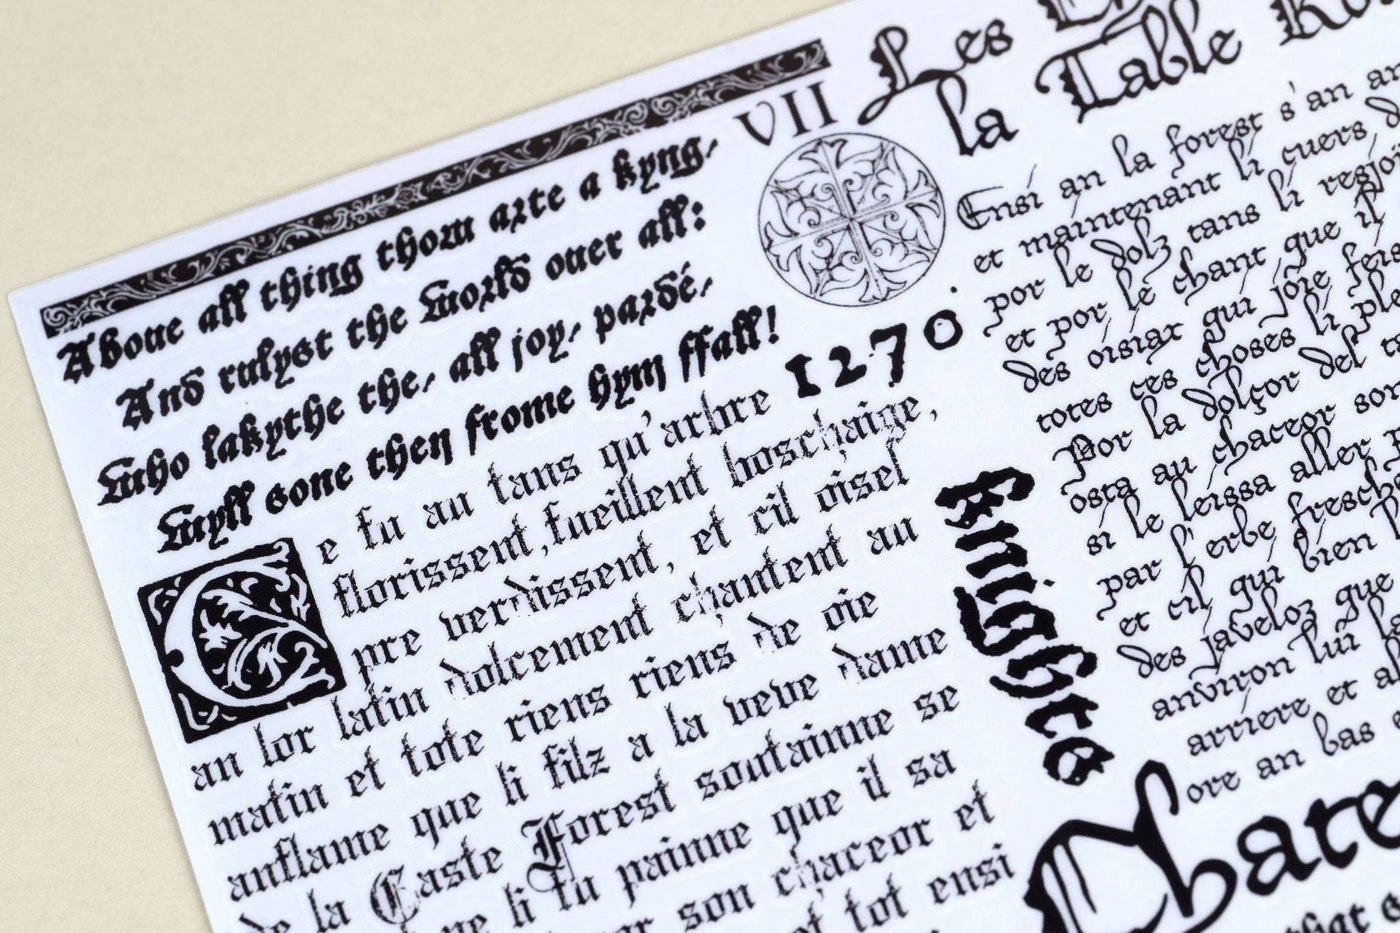 Aboue all thing thow arte a kyng,
And rulyst the world ouer all:
Who lakythe the, all joy, pardé,
Wyll sone then frome hym ffall!
VII
1270
Ce fu au tans qu'arbre
florissent, fueillent boschaige,
pre verdissent, et cil oisel
an lor latin dolcement chantent au
matin et tote riens de oie
anflame que li filz a la veve dame
de la Gaste Forest soutainne se
li fu painne que il sa
son chaceor et
et tot ensi
knights
Les
la Table
Ensi an la forest s'an
et maintenant li cuers
por le dolz tans
et por le chant que il
des oisiax qui joie
totes ces choses li
Por la dolçor del
osta au chaceor
si le leissa aller
par l'erbe
et cil qui bien
des javeloz que
anviron lui
arriere et
ore an bas